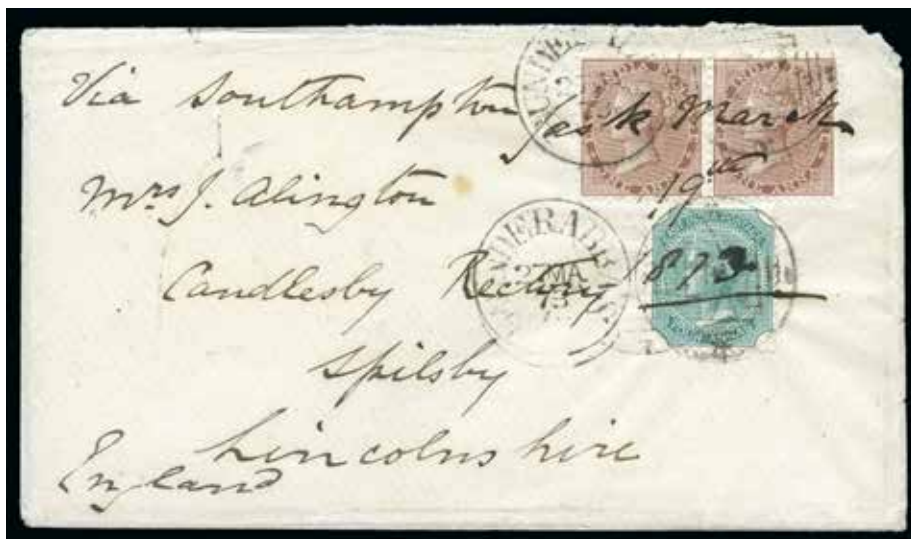 Via Southampton Jask March
19th
1873
Mrs J. Alington
Candlesby Rectory
Spilsby
Lincolnshire
England
MA
73